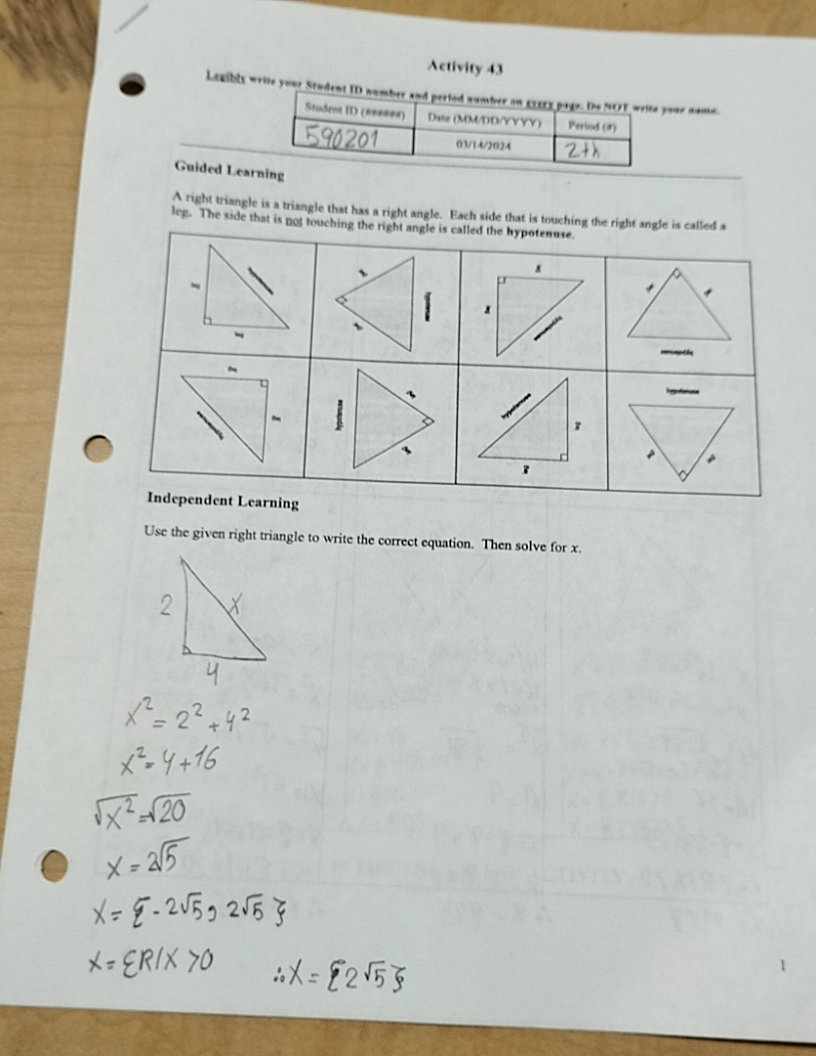 Activity 43
Legibly write your Student ID number and period number on every page. Do NOT write your name.
Student ID (######) Date (MM/DD/YYYY) Period (#)
590201 03/14/2024 2th
Guided Learning
A right triangle is a triangle that has a right angle. Each side that is touching the right angle is called a
leg. The side that is not touching the right angle is called the hypotenuse.
leg hypotenuse leg
leg leg hypotenuse
leg leg hypotenuse
leg leg hypotenuse
leg leg hypotenuse
hypotenuse leg leg
hypotenuse leg leg
hypotenuse leg leg
Independent Learning
Use the given right triangle to write the correct equation. Then solve for x.
2 x
4
x² = 2² + 4²
x² = 4 + 16
√x² = √20
x = 2√5
x = {-2√5, 2√5}
x = {R/x >0 ∴x = {2√5}
1